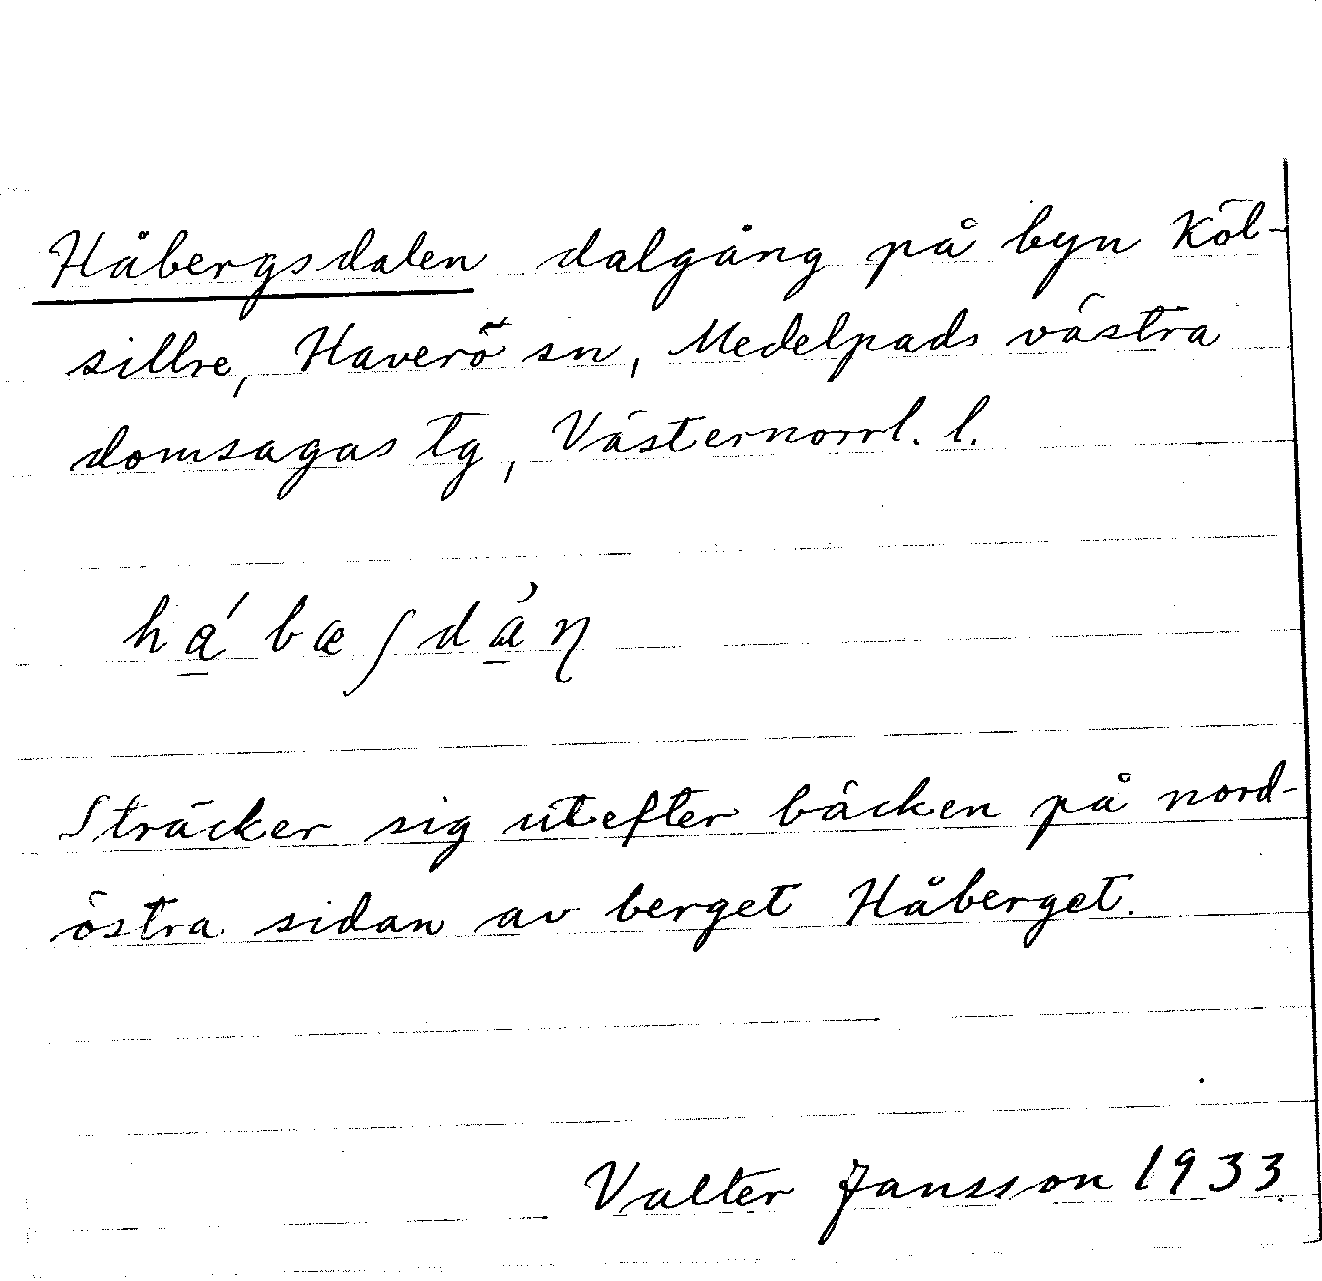 Håbergsdalen dalgång på byn Köl-
sillre, Haverö sn, Medelpads västra
domsagas tg, Västernorrl. l.
há̱bæʃdà̱ŋ
Sträcker sig utefter bäcken på nord-
östra sidan av berget Håberget.
Valter Jansson 1933.